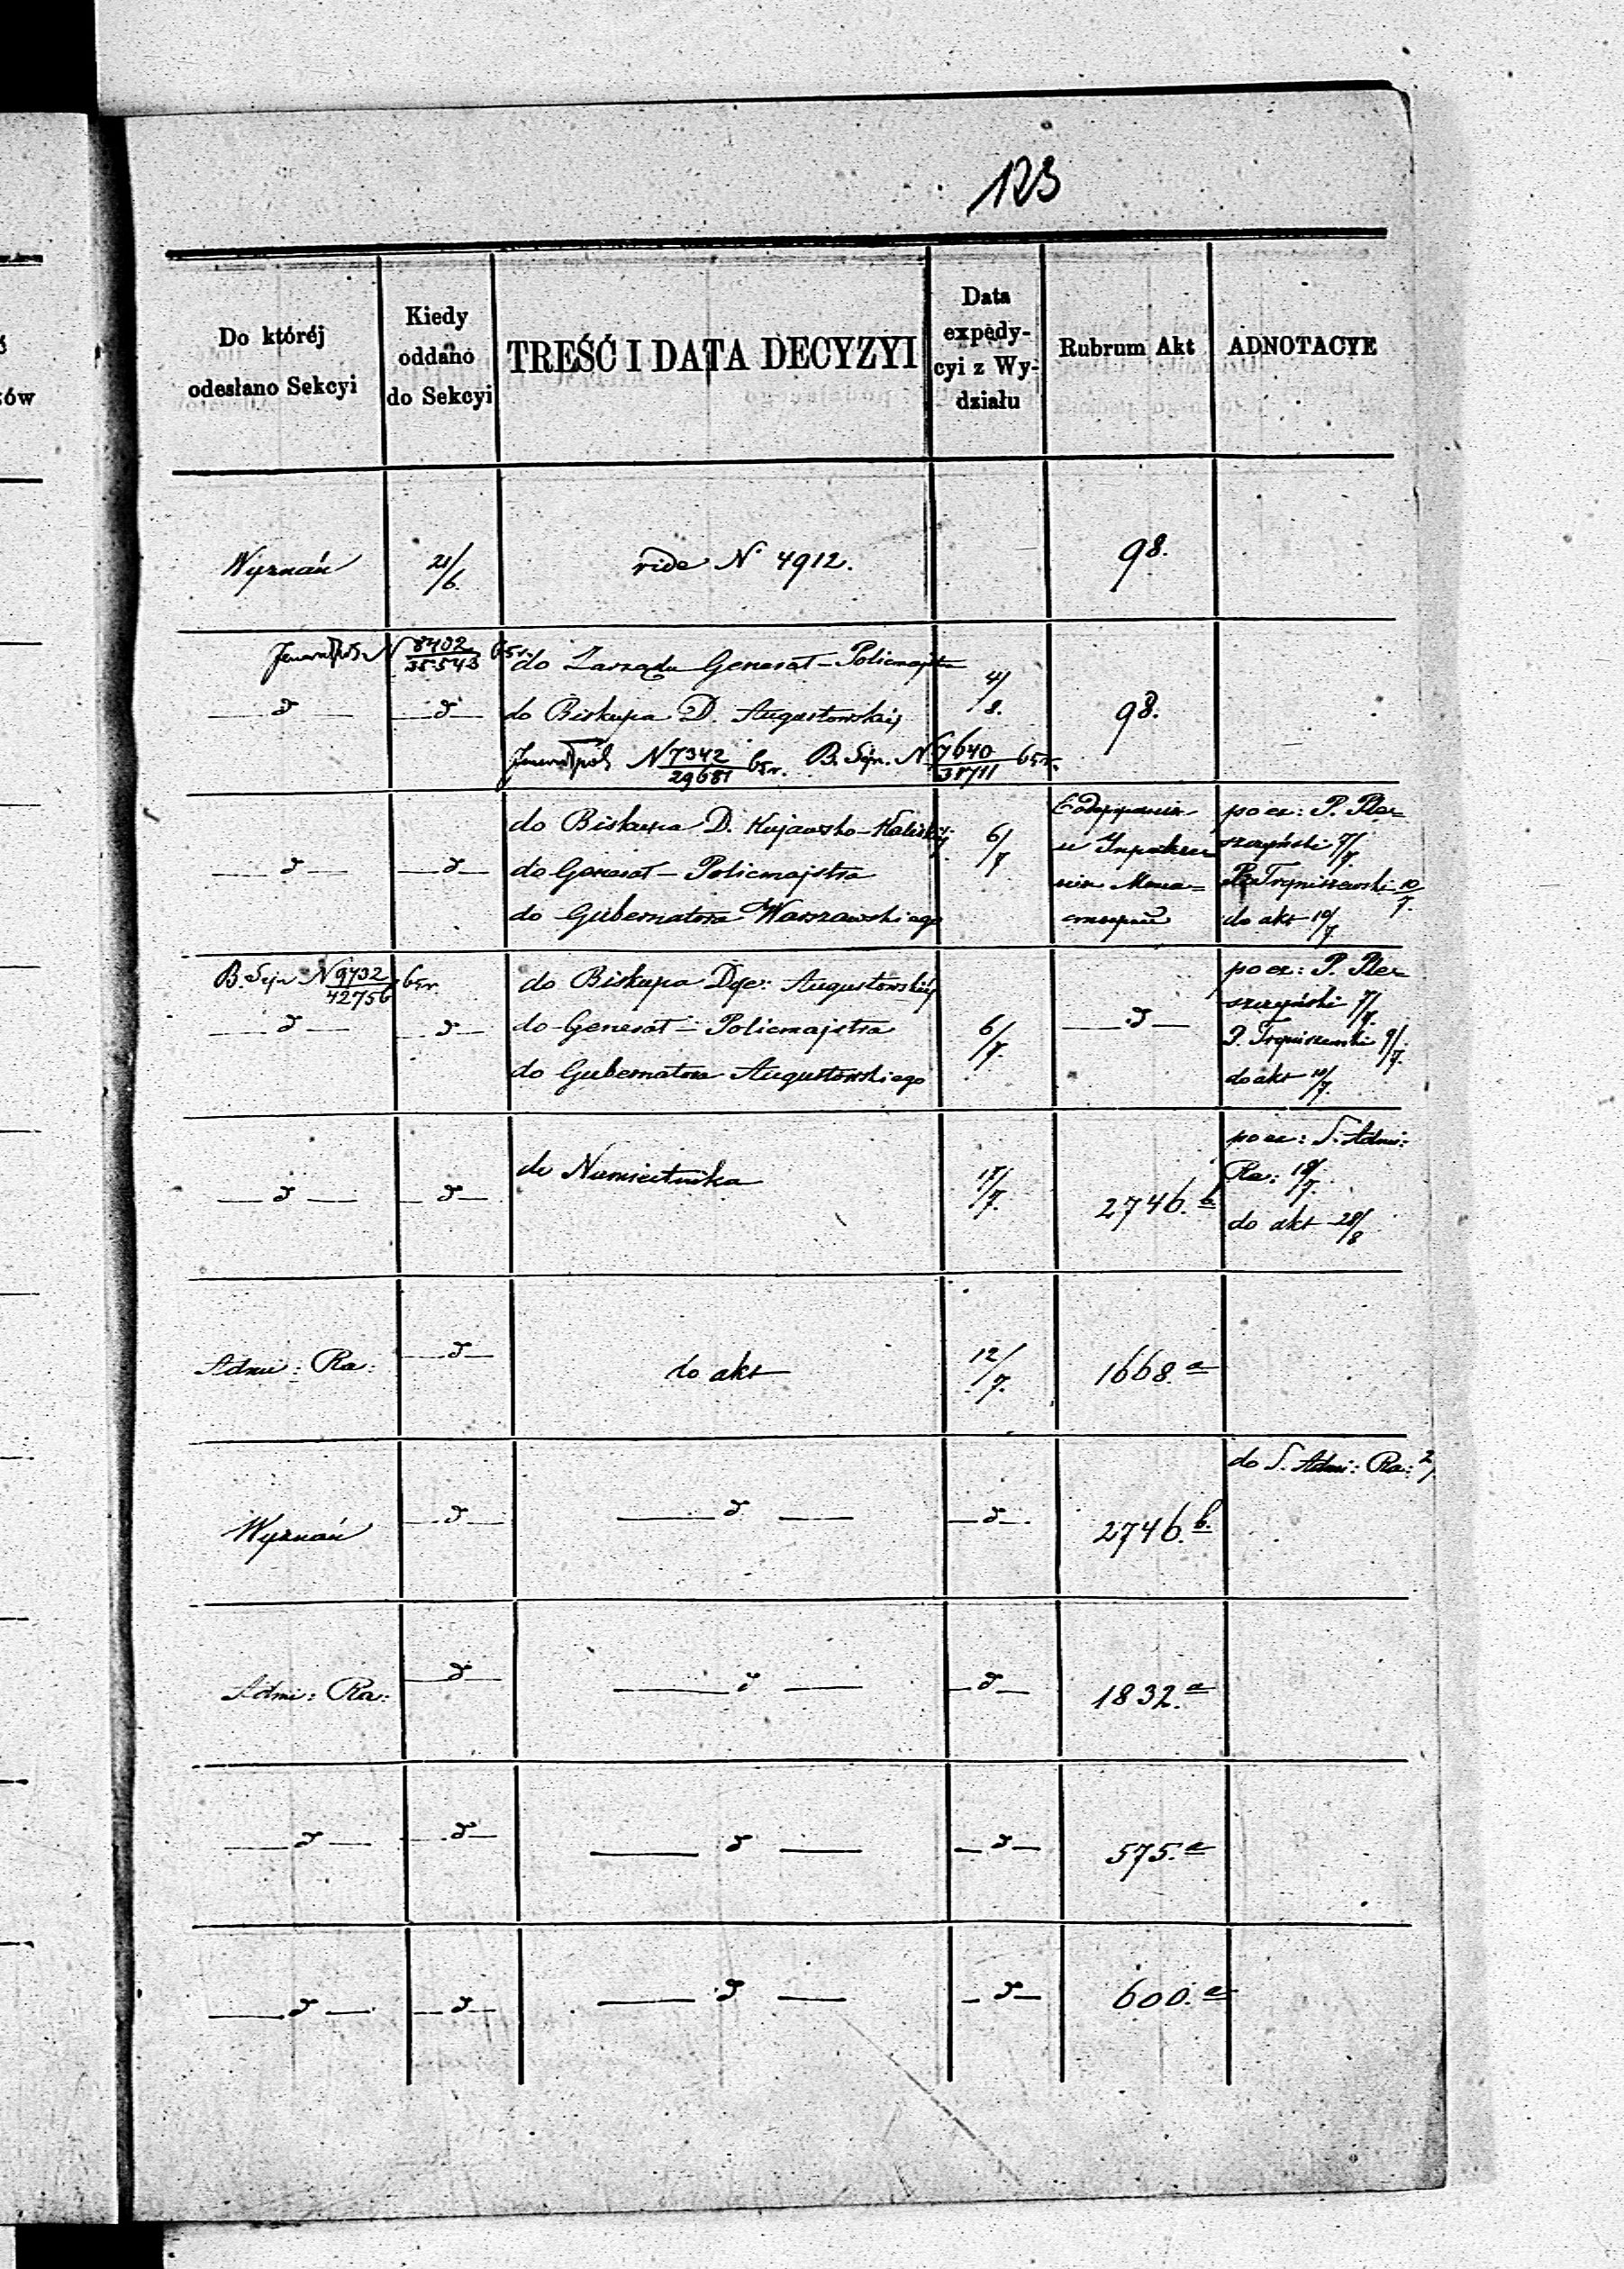 123
Do któréj
odesłano Sekcyi
Kiedy
oddano
do Sekcyi
TREŚĆ I DATA DECYZYI
Data
expedy-
cyi z Wy-
działu
Rubrum Akt
ADNOTACYE
Wyznań
21/6.
vide N° 4912.
98.
N 8402/35543 65r.
do Zarządu Generał-Policmajstra
do Biskupa D. Augustowskiéj
N 7342/29681 65r. B. Sejn. N 7640/38711 65r.
4/8.
98.
do Biskupa D. Kujawsko-Kaliskiéj
do Generał-Policmajstra
do Gubernatora Warszawskiego
6/7
po ex: P. Ple=
szczyński 7/7.
P. Trzpiszewski 10/7.
do akt 10/7.
B. Sejn N 9732/42756 65r.
do Biskupa Dye: Augustowskiéj
do Generał-Policmajstra
do Gubernatora Augustowskiego
6/7.
po ex: P. Ple=
szczyński 7/7.
P. Trzpiszewski 9/7.
do akt 10/7.
do Namiestnika
15/7.
2746.b
po ex: S. Admi:
Ra: 18/7.
do akt 28/8
Admi: Ra:
do akt
12/7.
1668.a
Wyznań
2746.b.
do S. Admi: Ra:
Admi: Ra:
1832.a
575.a
600.a